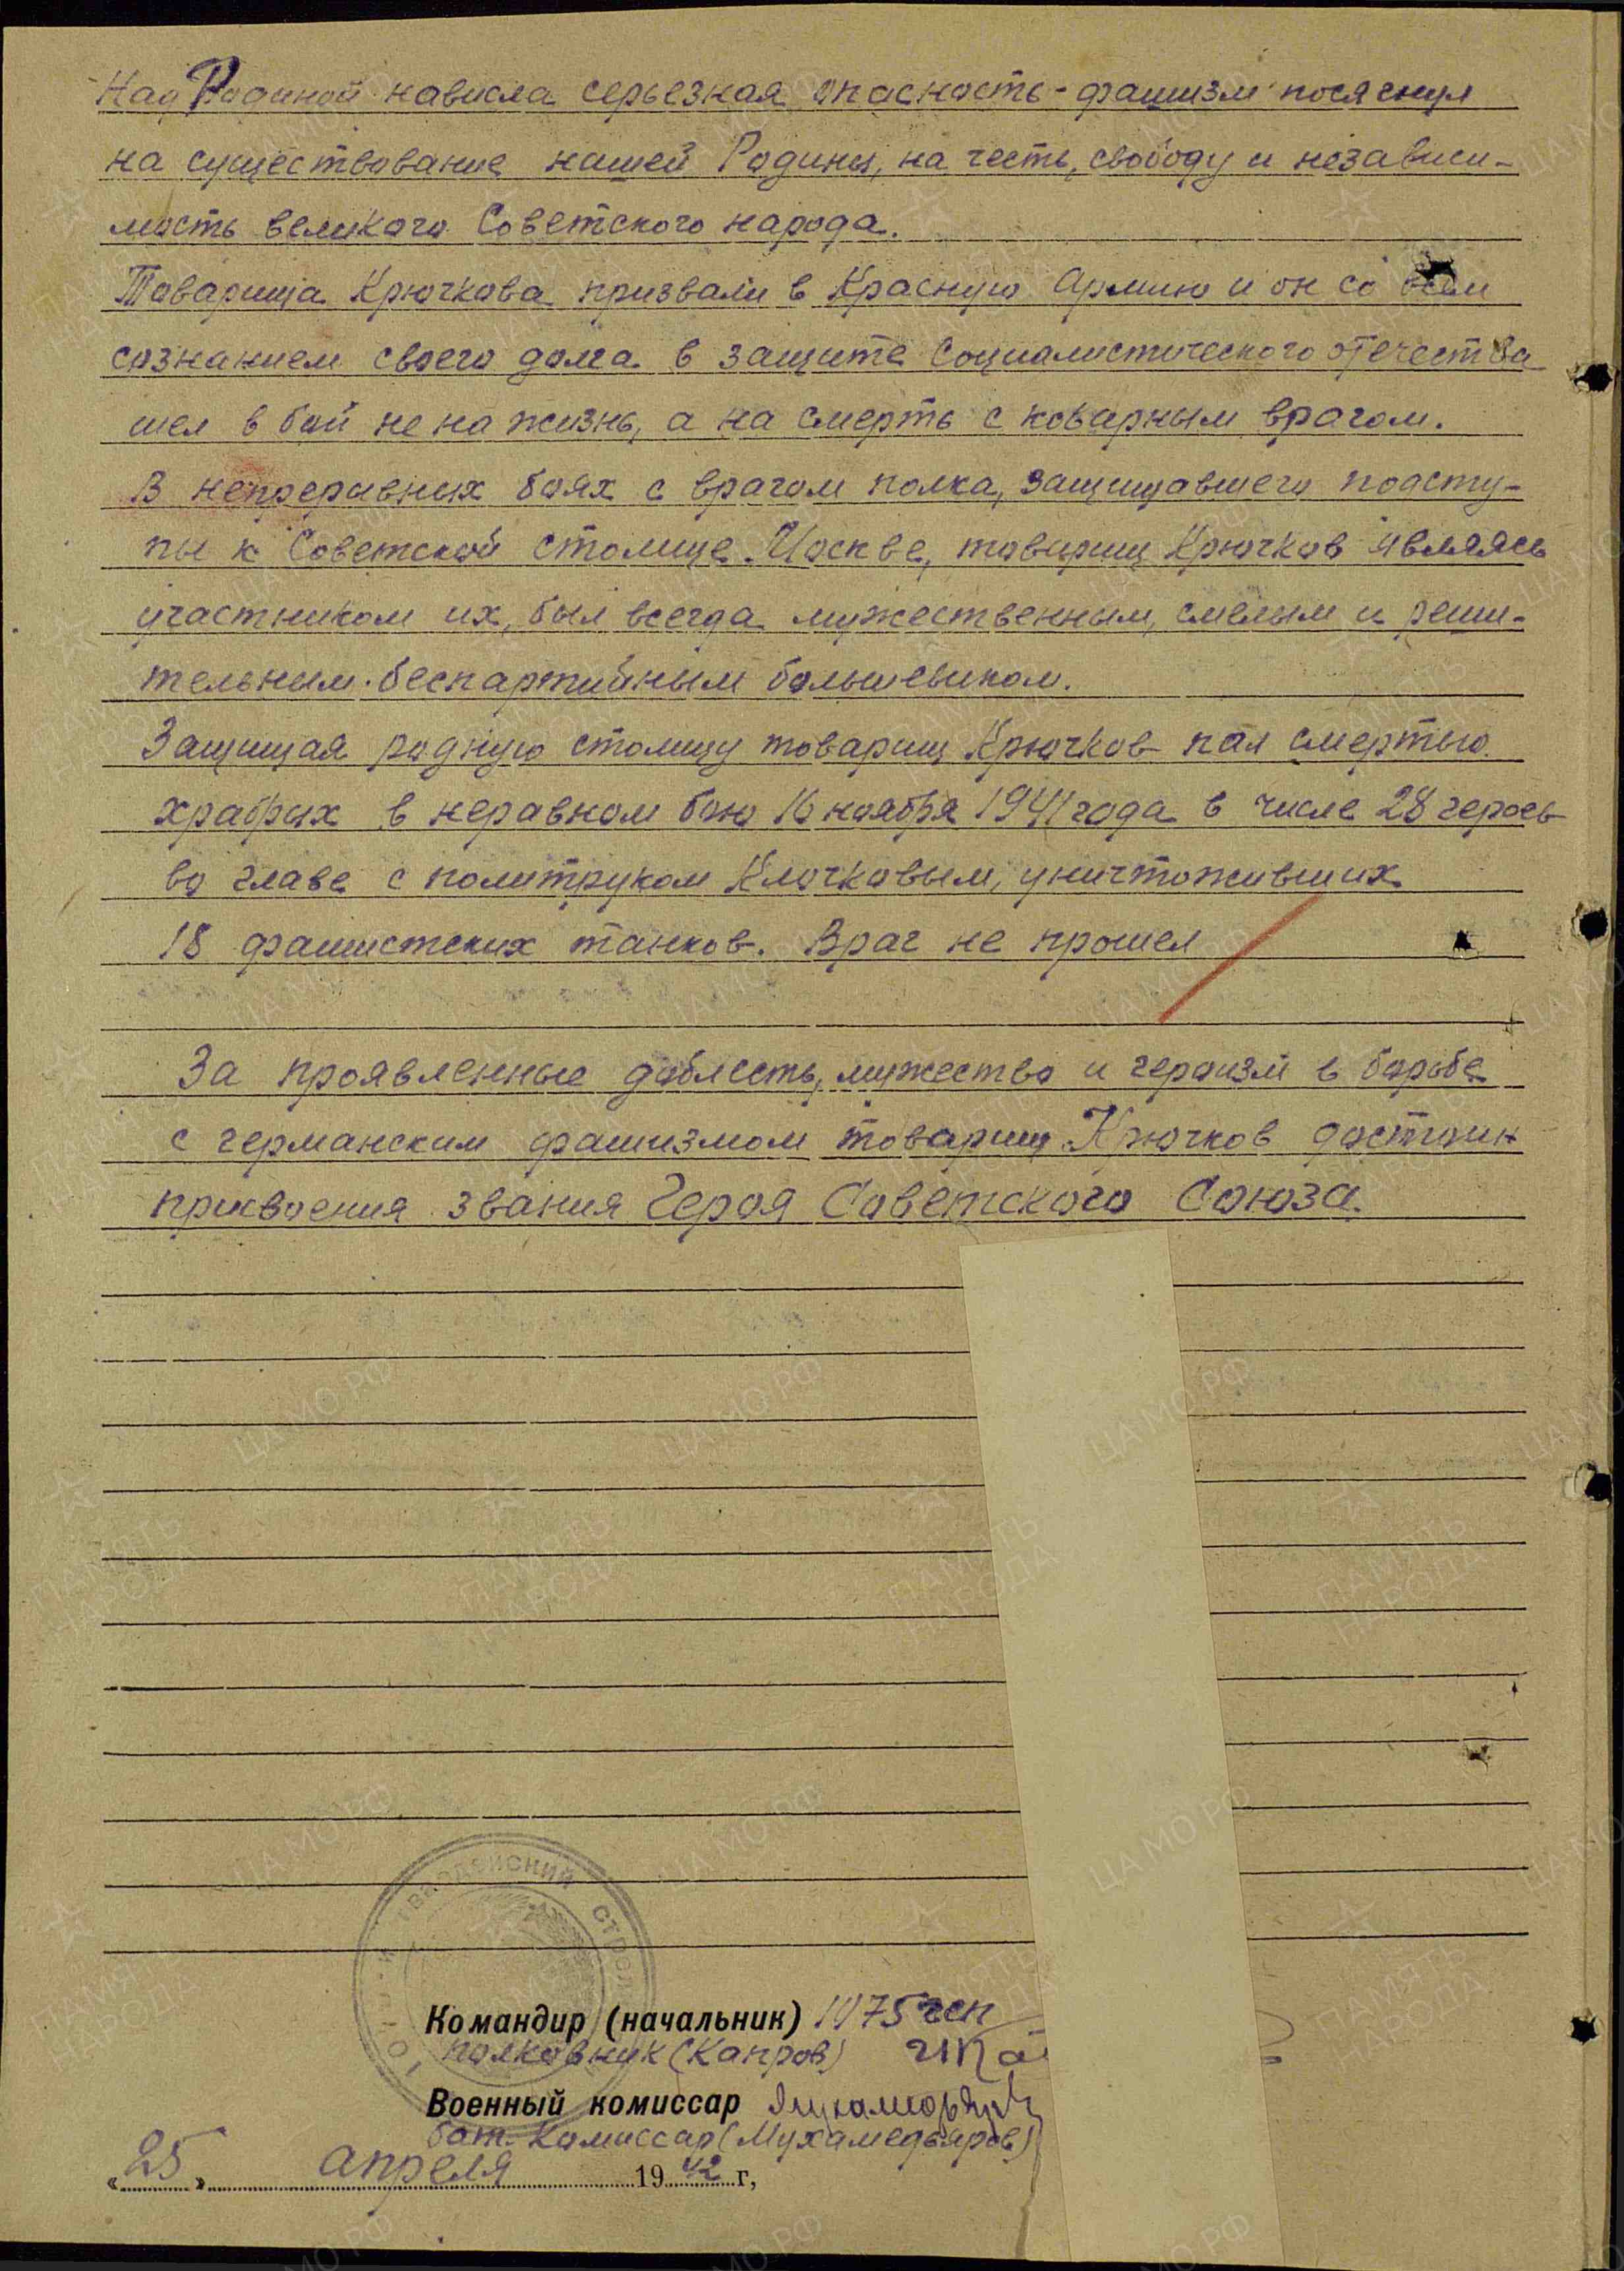 Над Родиной нависла серьезная опасность - фашизм посягнул
на существование нашей Родины, на честь, свободу и независи-
мость великого Советского народа.
Товарища Крючкова призвали в Красную Армию и он со всем
сознанием своего долга в защите социалистического отечества
шел в бой не на жизнь, а на смерть с коварным врагом.
В непрерывных боях с врагом полка, защищавшего подсту-
пы к Советской столице Москве, товарищ Крючков являясь
участником их, был всегда мужественным, смелым и реши-
тельным беспартийным большевиком.
Защищая родную столицу товарищ Крючков пал смертью
храбрых в неравном бою 16 ноября 1941 года в числе 28 героев
во главе с политруком Клочковым, уничтоживших
18 фашистских танков. Враг не прошел
За проявленные доблесть, мужество и героизм в борьбе
с германским фашизмом товарищ Крючков достоин
присвоения звания Героя Советского Союза.
Командир (начальник) 1075 гсп
полковник (Капров)
Военный комиссар
бат. комиссар (Мухамедьяров)
«25» апреля 1942 г,
ЦА МО РФ
ПАМЯТЬ
НАРОДА